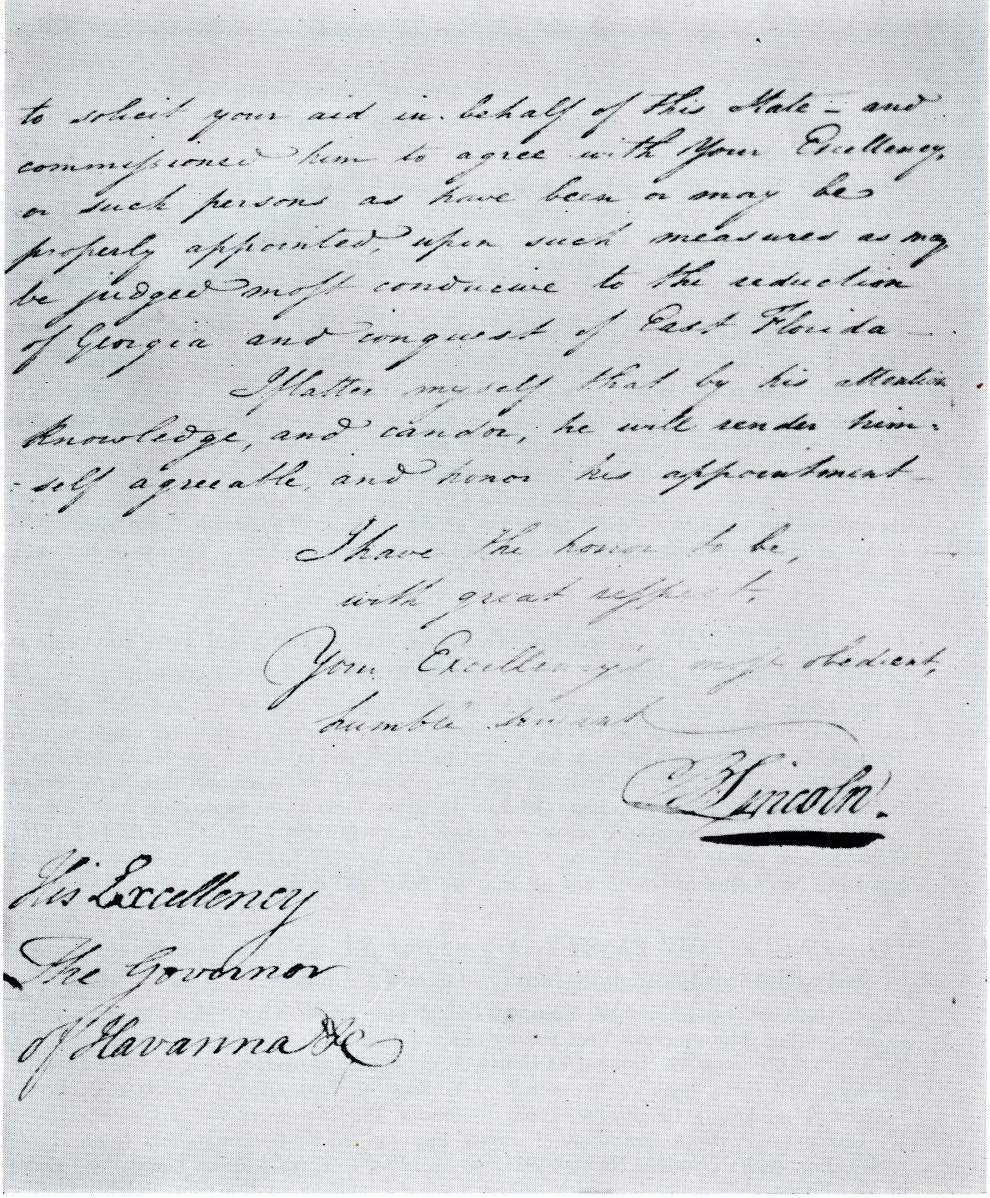 to solicit your aid in behalf of this State – and
commissioned him to agree with Your Excellency,
or such persons as have been or may be
properly appointed, upon such measures as may
be judged most conducive to the reduction
of Georgia and conquest of East Florida –
I flatter myself that by his attention
knowledge, and candor, he will render him=
=self agreeable, and honor his appointment –
I have the honor to be,
with great respect,
Your Excellency's most obedient,
humble servant
B Lincoln.
His Excellency
The Governor
of Havanna &c